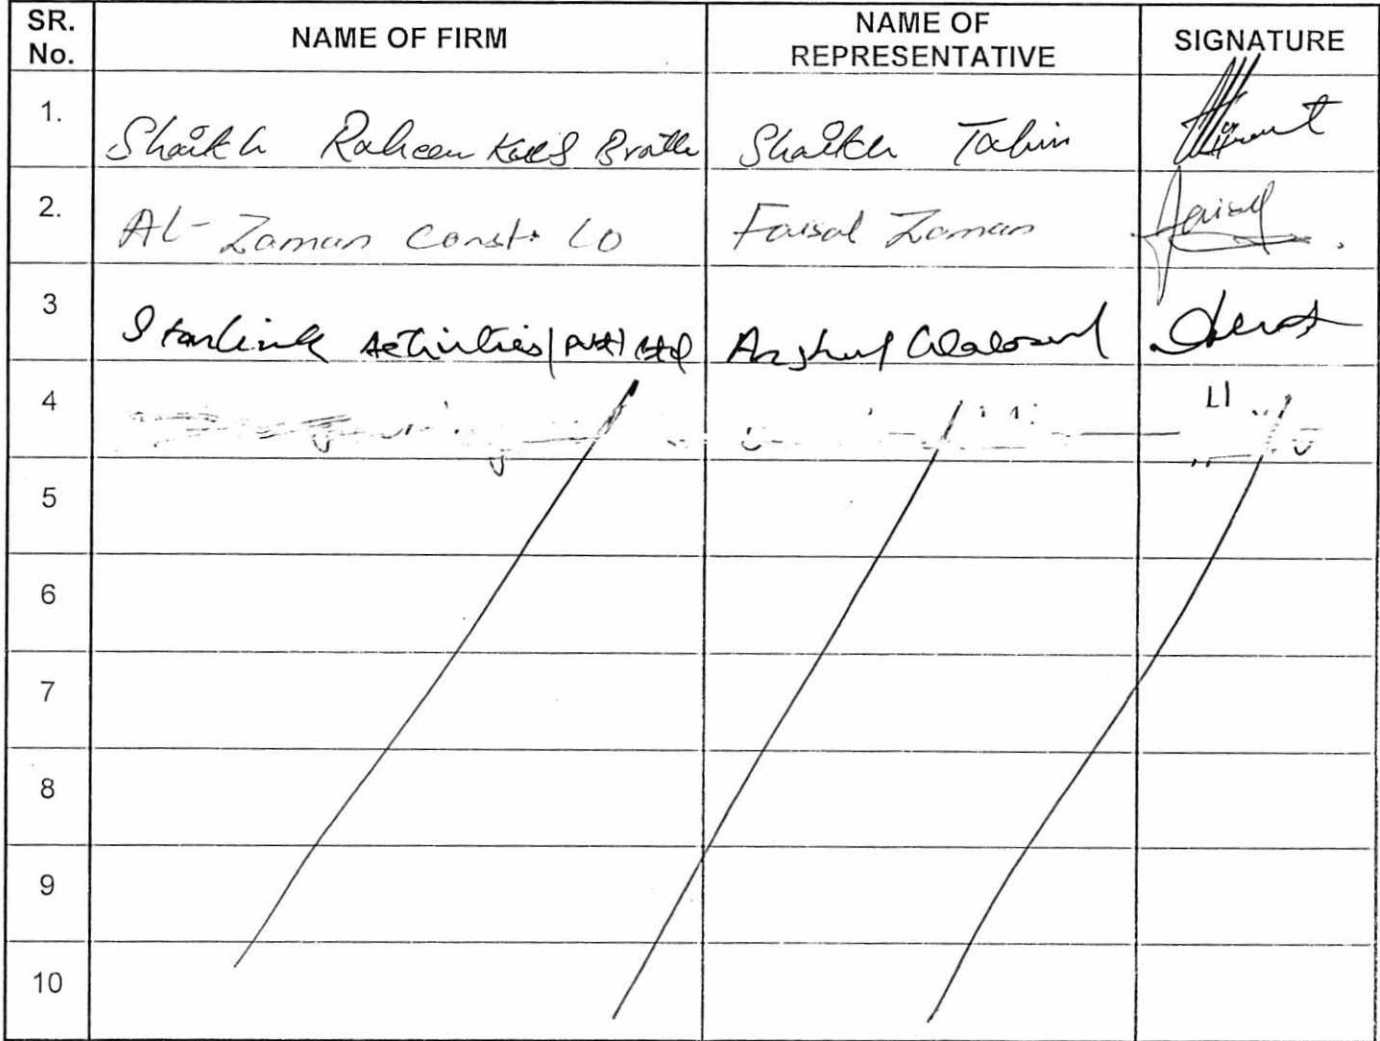 SR. No. NAME OF FIRM NAME OF REPRESENTATIVE SIGNATURE
1. Shaikh Raheem Brothe Shaikh Tahir
2. Al-Zaman Const: Co Faisal Zaman Faisal
3 Starlink Activities (Pvt) Ltd
4
5
6
7
8
9
10